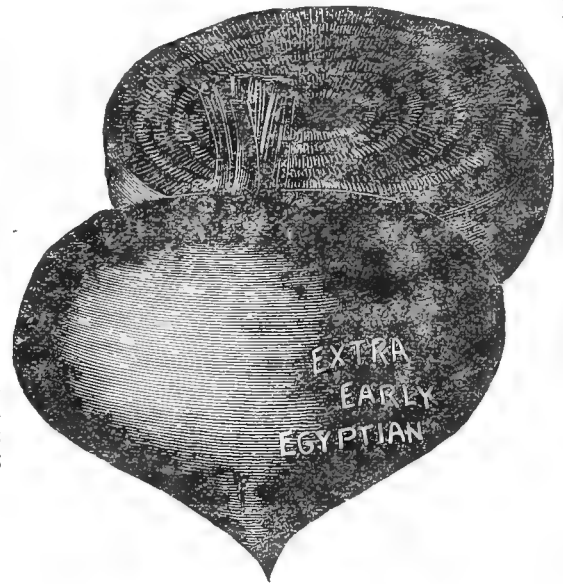 EXTRA
EARLY
EGYPTIAN